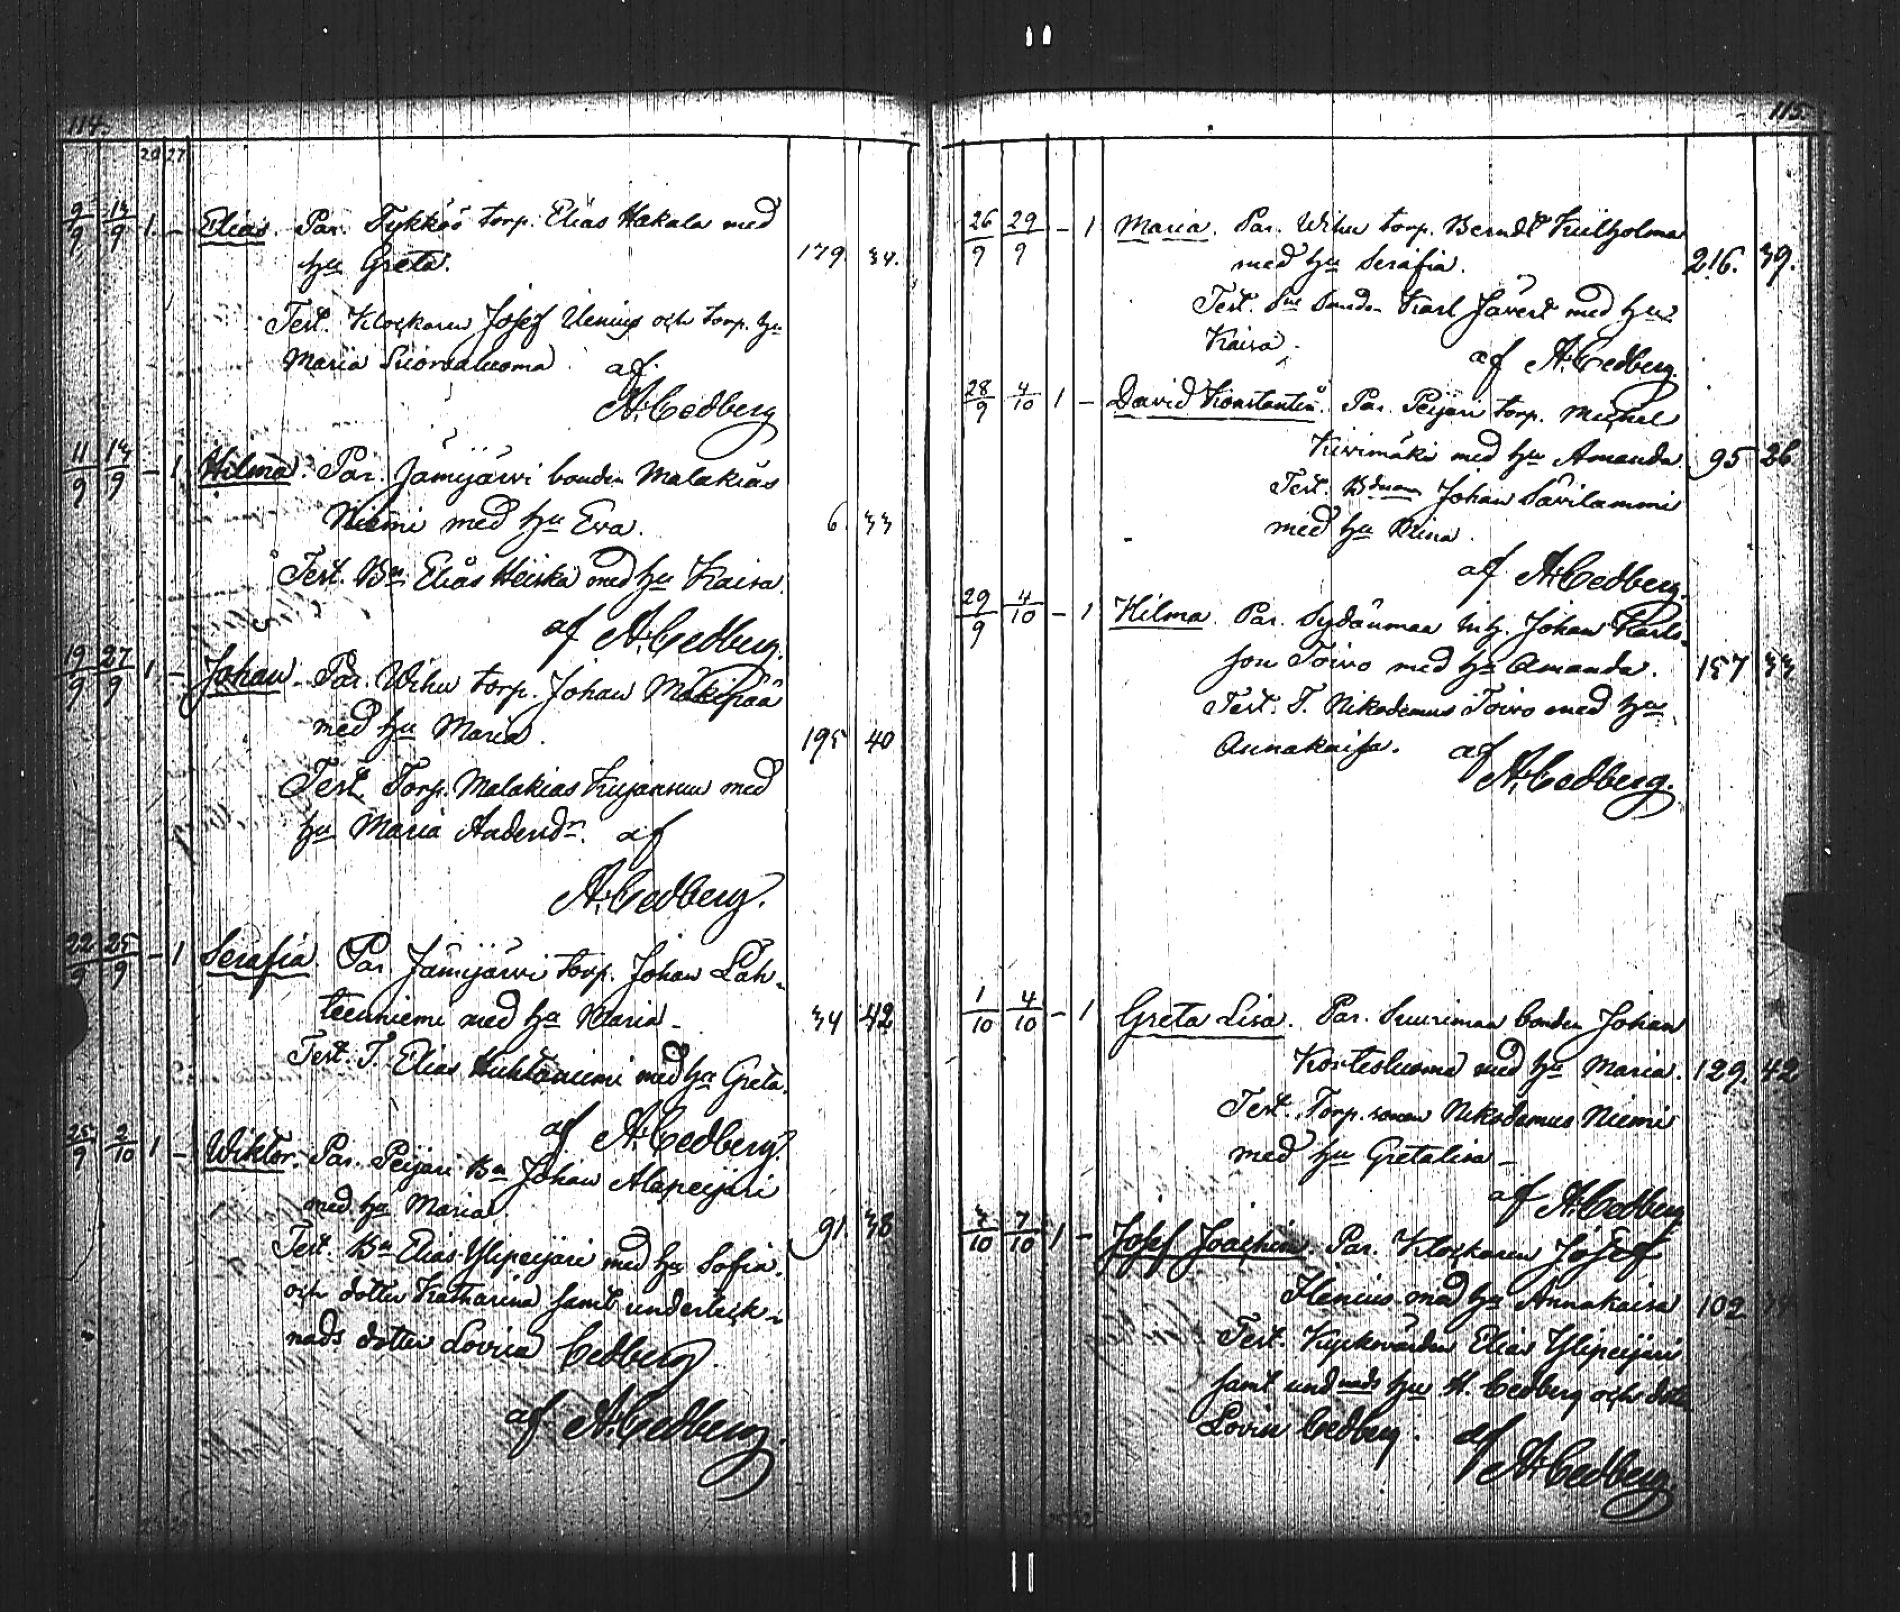 114.
29 27
9/9 14/9 1. – Elias. Par. Tykköö torp. Elias Hakala med
hu Greta. 179. 34.
Test. Klockaren Josef Ilenius och torp. hu
Maria Suorsaluoma af
A. Cedberg
11/9 14/9 – 1 Hilma. Par. Jämijärvi bonden Malakias
Niemi med hu Eva. 6 33
Test. Bn. Elias Heiska med hu Kaisa.
af A. Cedberg.
19/9 27/9 1 – Johan. Par. Wihu torp. Johan Mäkipää
med hu Maria. 195 40
Test. Torp. Malakias Kujansuu med
hu Maria Andersdr. af
A. Cedberg.
22/9 25/9 – 1 Serafia. Par. Jämijärvi torp. Johan Läh-
teenniemi med hu Maria – 34 42
Test. T. Elias Huhtaniemi med hu Greta.
af A. Cedberg.
25/9 2/10 1 – Wiktor. Par. Peijari Bn Johan Alapeijari
med hu Maria. 91. 38
Test. Bn Elias Ylipeijari med hu Sofia.
och dotter Katharina samt underteck-
nads dotter Lovisa Cedberg.
af A. Cedberg.
115.
26/9 29/9 – 1 Maria. Par. Wihu torp. Berndt Kiilholma
med hu Serafia. 216. 39.
Test. Karl Jävert med hu
Kaisa. af A. Cedberg.
28/9 4/10 1 – David Konstantin. Par. Peijari torp. Michel
Kivimäki med hu Amanda. 95 26
Test. Johan Savilammi
med hu Miina.
af A. Cedberg.
29/9 4/10 – 1 Hilma. Par. Sydänmaa inh. Johan Karls-
son Toivo med hu Amanda. 157 33
Test. T. Nikodemus Toivo med hu
Annakaisa. af
A. Cedberg.
1/10 4/10 – 1 Greta Lisa. Par. Suurimaa bonden Johan
Kortesluoma med hu Maria. 129. 42
Test. Torp. sonen Nikodemus Niemi
med hu Gretalisa –
af A. Cedberg
3/10 7/10 1 – Josef Joachim. Par. Klockaren Josef
Ilenius med hu Annakaisa 102
Test. Kyrkovärden Elias Ylipeijari
samt undnads hu M. Cedberg och dotter
Lovisa Cedberg. af
A. Cedberg.